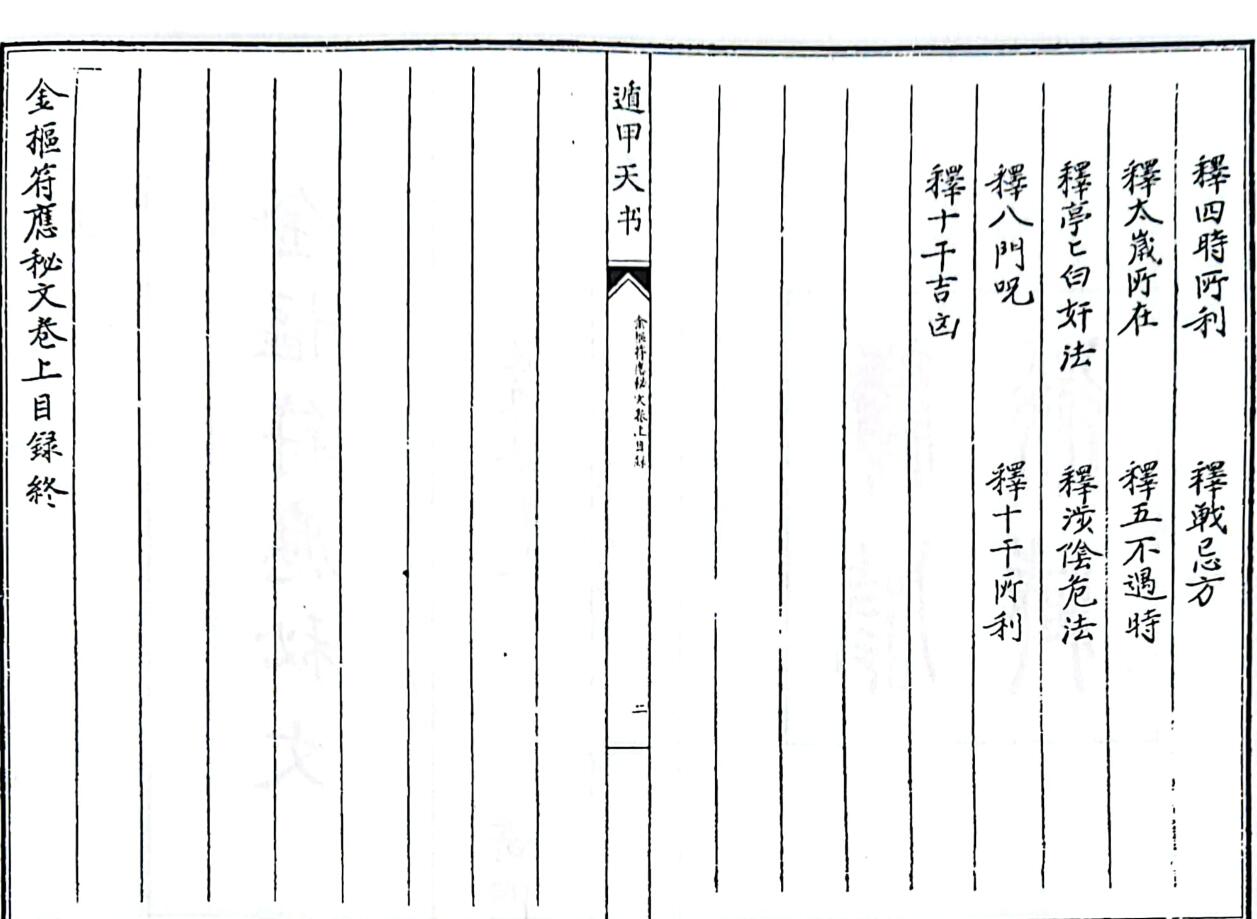 釋四時所利　釋戰忌方
釋太歲所在　釋五不遇時
釋亭亡白奸法　釋涉陰危法
釋八門呪　釋十干所利
釋十干吉凶
遁甲天书
金樞符應秘文卷上目録
二
金樞符應秘文卷上目録終